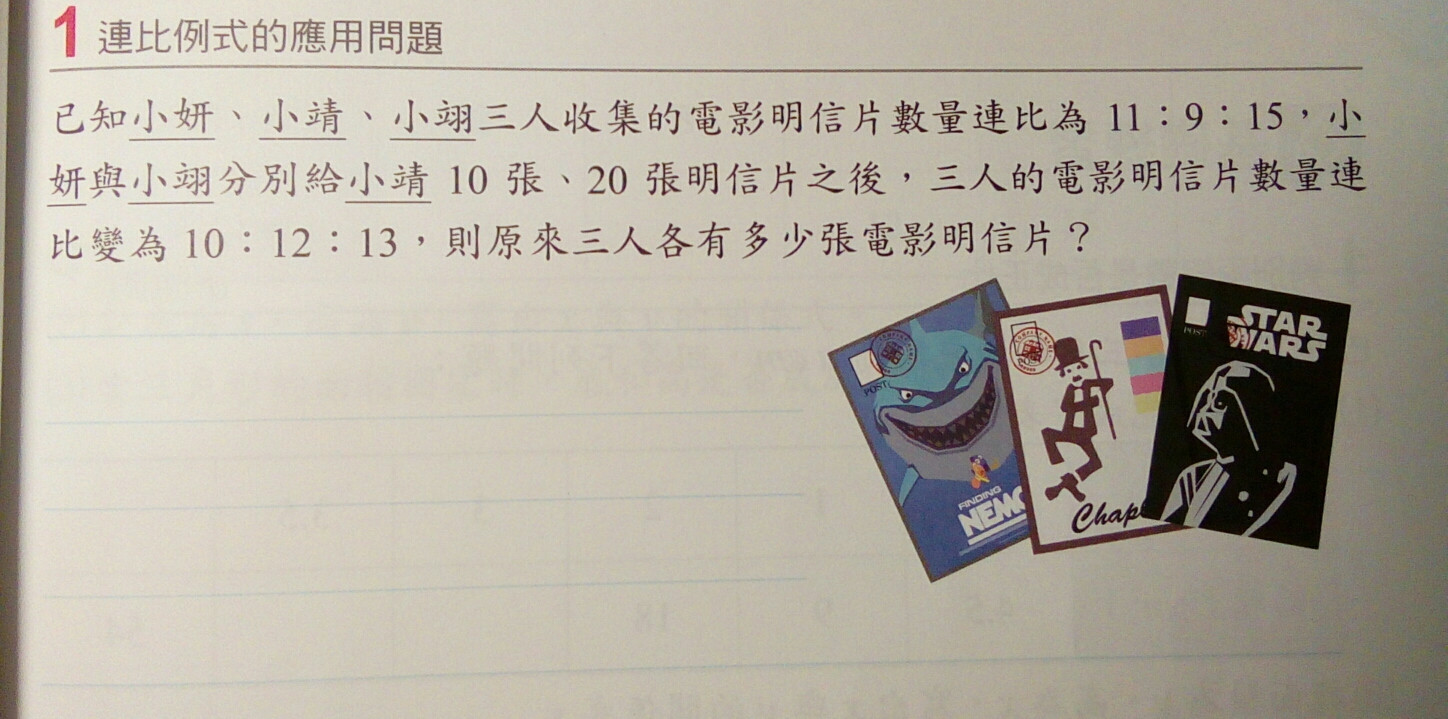 1 連比例式的應用問題
已知小妍、小靖、小翊三人收集的電影明信片數量連比為 11：9：15，小
妍與小翊分別給小靖 10 張、20 張明信片之後，三人的電影明信片數量連
比變為 10：12：13，則原來三人各有多少張電影明信片？
POST
FINDING
NEMO
Chapl
POST
STAR
WARS